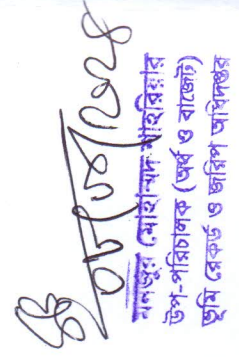 মনজুর মোহাম্মদ শাহরিয়ার
উপ-পরিচালক (অর্থ ও বাজেট)
ভূমি রেকর্ড ও জরিপ অধিদপ্তর